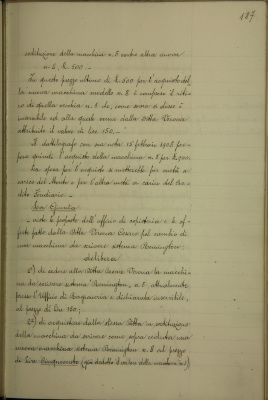 187
sostituzione della macchina n. 5 contro altra nuova
n. 8, £. 500. –
In questo prezzo ultimo di £. 650 per l'acquisto del
la nuova macchina modello n. 8 è compreso il riti
ro di quella vecchia n. 1 che, come sopra si disse è
inservibile ed alla quale venne dalla Ditta Verona
attribuito il valore di lire 150. –
Il dattilografo con sua nota 15 febbraio 1908
pone quindi l'acquisto della macchina n. 8 per £.
La spesa per l'acquisto si metterebbe per metà a
carico del Monte e per l'altra metà a carico del Cre
dito Fondiario. –
La Giunta
vista la proposta dell'ufficio di segreteria e le of
ferte fatte dalla Ditta Verona Cesare pel cambio di
una macchina da scrivere sistema Remington:
delibera
1°) di cedere alla Ditta Cesare Verona la macchi
na da scrivere sistema Remington, n. 1 attualmente
presso l'Ufficio di Ragioneria e dichiarata inservibile,
al prezzo di lire 150;
2°) di acquistare dalla stessa Ditta in sostituzione
della macchina da scrivere come sopra ceduta una
nuova macchina sistema Remington n. 8 al prezzo
di lire cinquecento (già dedotto il valore della macchina n. 1)